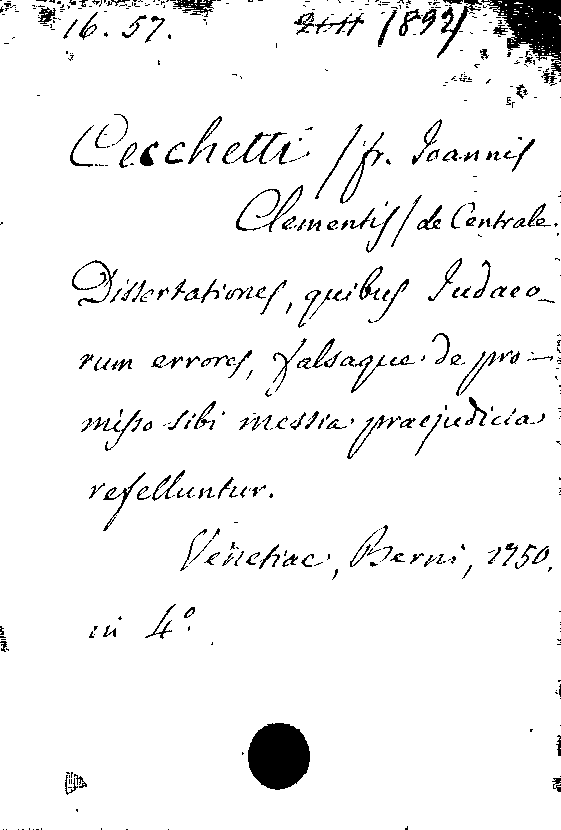 16. 57. 1892
Cecchetti /fr. Ioannis
Clementis/ de Centrale.
Dissertationes, quibus Iudaeo-
rum errores, falsaque de pro-
misso sibi messia praejudicia
refelluntur.
Venetiae, Berni, 1750.
in 4º.